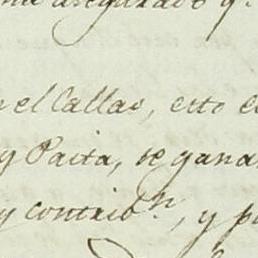 asegurado q.
n el Callao, esto e
y Paita, se gana
y contxio.n, y p